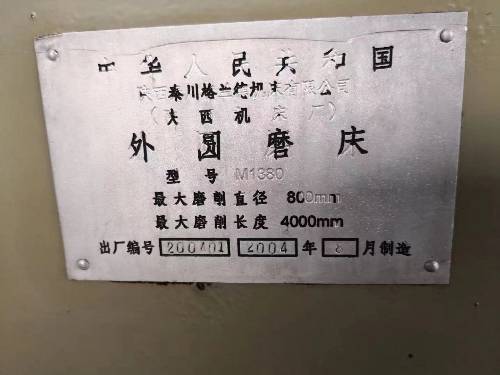 中华人民共和国
陕西秦川格兰德机床有限公司
（陕西机床厂）
外圆磨床
型号 M1380
最大磨削直径 800mm
最大磨削长度 4000mm
出厂编号 200401 2004 年 8 月制造